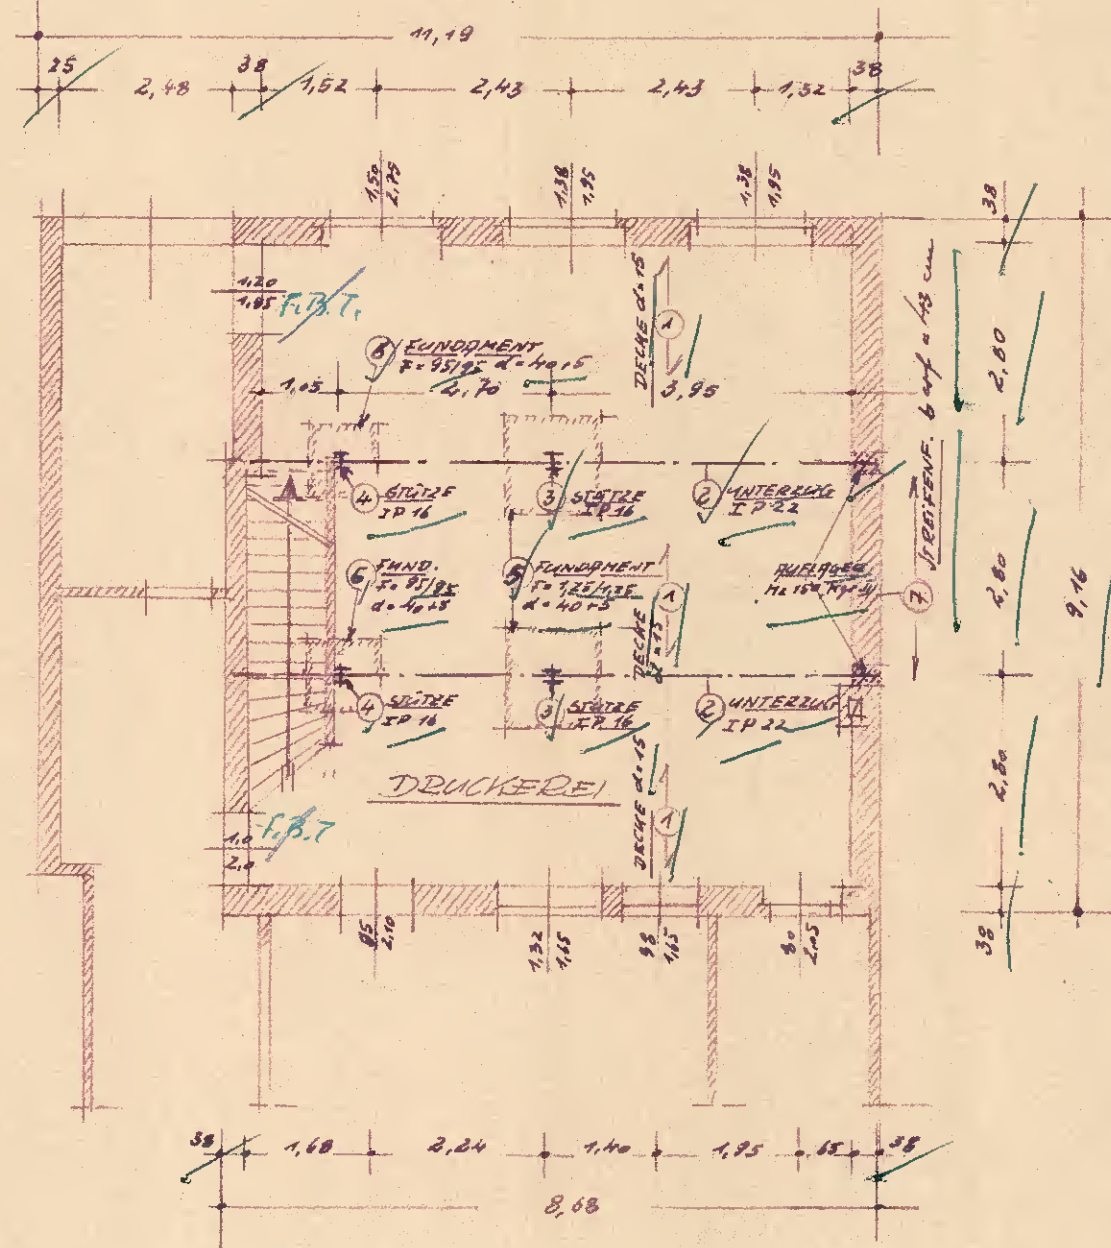 11,19
25
2,48
38
1,52
2,43
2,43
1,32
38
1,50
2,75
1,38
1,95
1,38
1,95
38
1,20
1,95
F.B.T.
6 FUNDAMENT
F = 95/95 d = 40+5
1,05
2,70
3,95
DECKE d=15
1
7 STREIFENF. b auf = 43 cm
2,80
4 STÜTZE
IP 16
3 STÜTZE
IP 16
2 UNTERZUG
IP 22
6 FUND.
F = 95/95
d = 40+5
5 FUNDAMENT
F = 1,25/1,25
d = 40+5
DECKE
d = 15
1
AUFLAGER
2,80
9,16
4 STÜTZE
IP 16
3 STÜTZE
IP 16
2 UNTERZUG
IP 22
DRUCKEREI
DECKE d=15
1
2,80
F.B.T
1,0
2,0
95
2,10
1,32
1,65
98
1,65
80
2,05
38
38
1,68
2,24
1,40
1,95
65
38
8,68